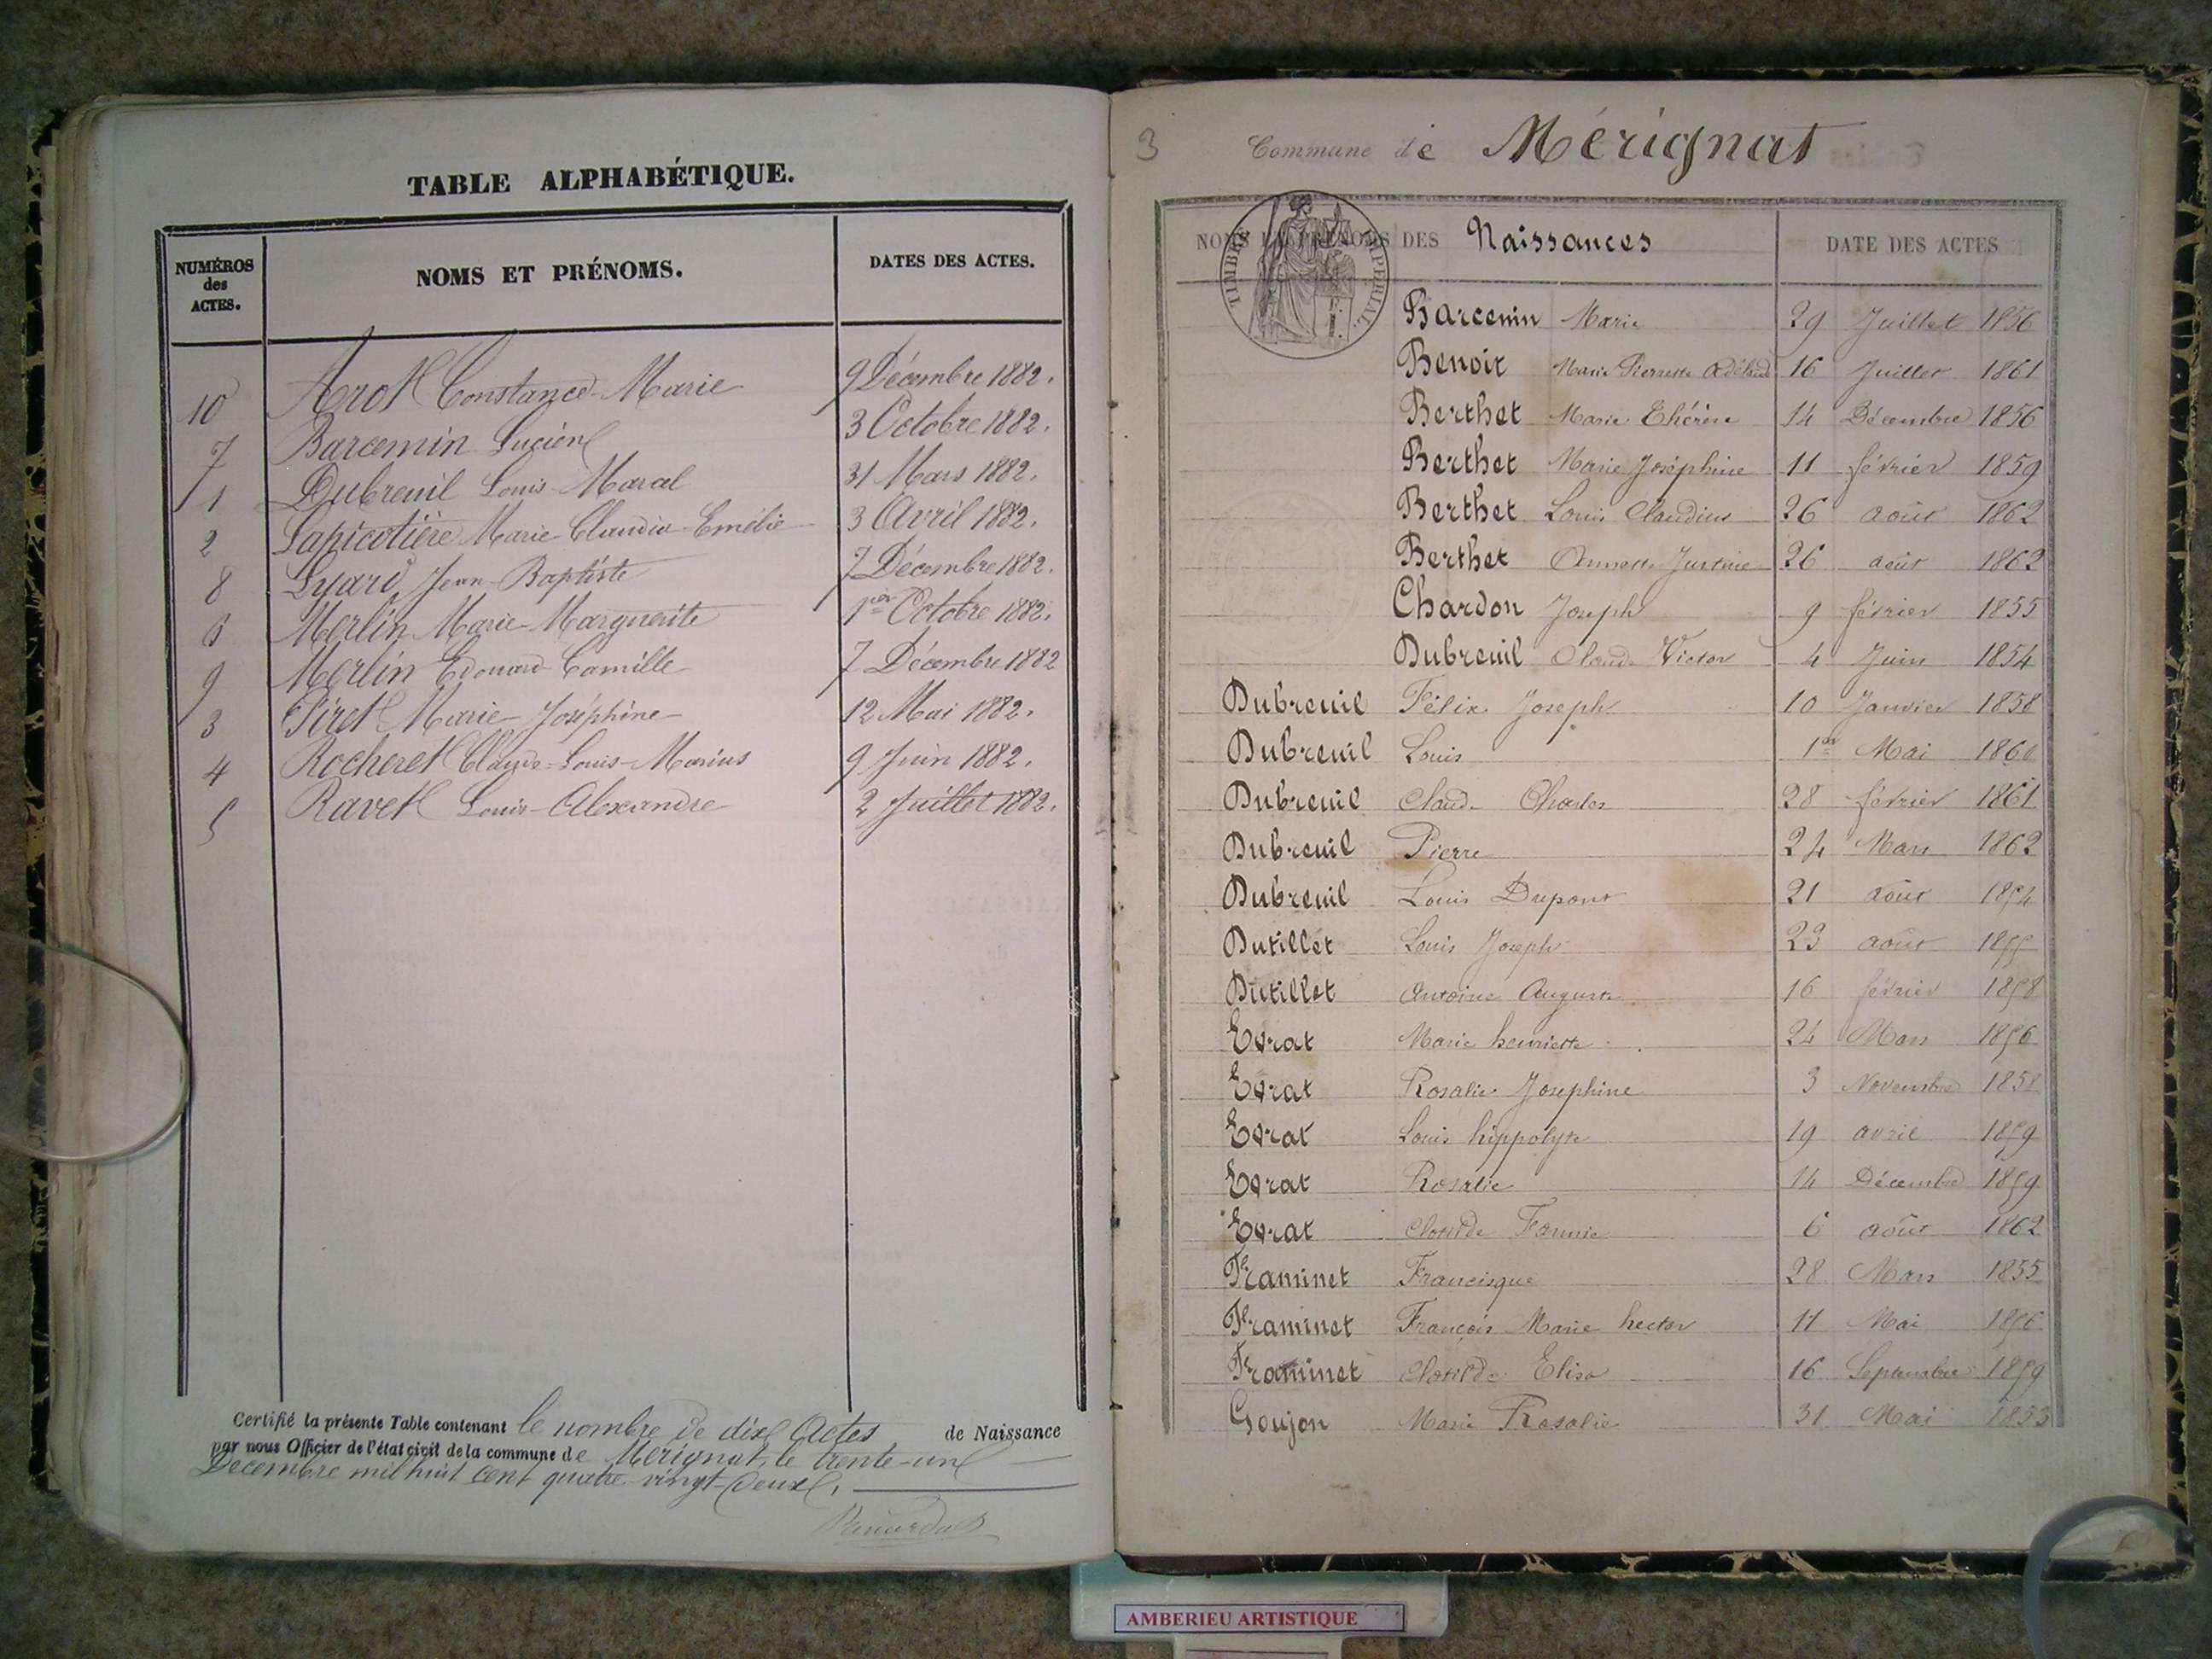 TABLE ALPHABÉTIQUE.
NUMÉROS des ACTES. NOMS ET PRÉNOMS. DATES DES ACTES.
10 Arot Constance-Marie 9 Décembre 1882.
7 Barcemin Lucien 3 Octobre 1882.
1 Dubreuil Louis-Marcel 31 Mars 1882.
2 Lapicotière Marie-Claudia-Emélie 3 Avril 1882.
8 Lyard Jean-Baptiste 7 Décembre 1882.
6 Merlin Marie-Marguerite 1er Octobre 1882.
9 Merlin Edouard-Camille 7 Décembre 1882
3 Piret Marie-Joséphine 12 Mai 1882.
4 Rocheret Claude-Louis-Marius 9 Juin 1882.
5 Ravet Louis-Alexandre 2 Juillet 1882.
Certifié la présente Table contenant le nombre de dix Actes de Naissance
par nous Officier de l'état civil de la commune de Mérignat, le trente-un
Décembre mil huit cent quatre-vingt-deux.
3 Commune de Mérignat
NOMS ET PRÉNOMS DES Naissances DATE DES ACTES
TIMBRE IMPERIAL.
Barcemin Marie 29 Juillet 1856
Benoit Marie Pierrette Adélaide 16 Juillet 1861
Berthet Marie Thérèse 14 Décembre 1856
Berthet Marie Joséphine 11 février 1859
Berthet Louis Claudius 26 août 1862
Berthet Annette Justine 26 août 1862
Chardon Joseph 9 février 1855
Dubreuil Claude Victor 4 Juin 1854
Dubreuil Félix Joseph 10 Janvier 1858
Dubreuil Louis 1er Mai 1860
Dubreuil Claude Charles 28 février 1861
Dubreuil Pierre 24 Mars 1862
Dubreuil Louis Dupont 21 août 1854
Dutillet Louis Joseph 23 août 1855
Dutillet Antoine Auguste 16 février 1858
Evrat Marie henriette 24 Mars 1856
Evrat Rosalie Josephine 3 Novembre 1858
Evrat Louis hippolyte 19 avril 1859
Evrat Rosalie 14 Décembre 1859
Evrat Clotilde Fannie 6 août 1862
Framinet Francisque 28 Mars 1855
Framinet François Marie hector 11 Mai 1856
Framinet Clotilde Elisa 16 Septembre 1859
Goujon Marie Rosalie 31 Mai 1853
AMBERIEU ARTISTIQUE